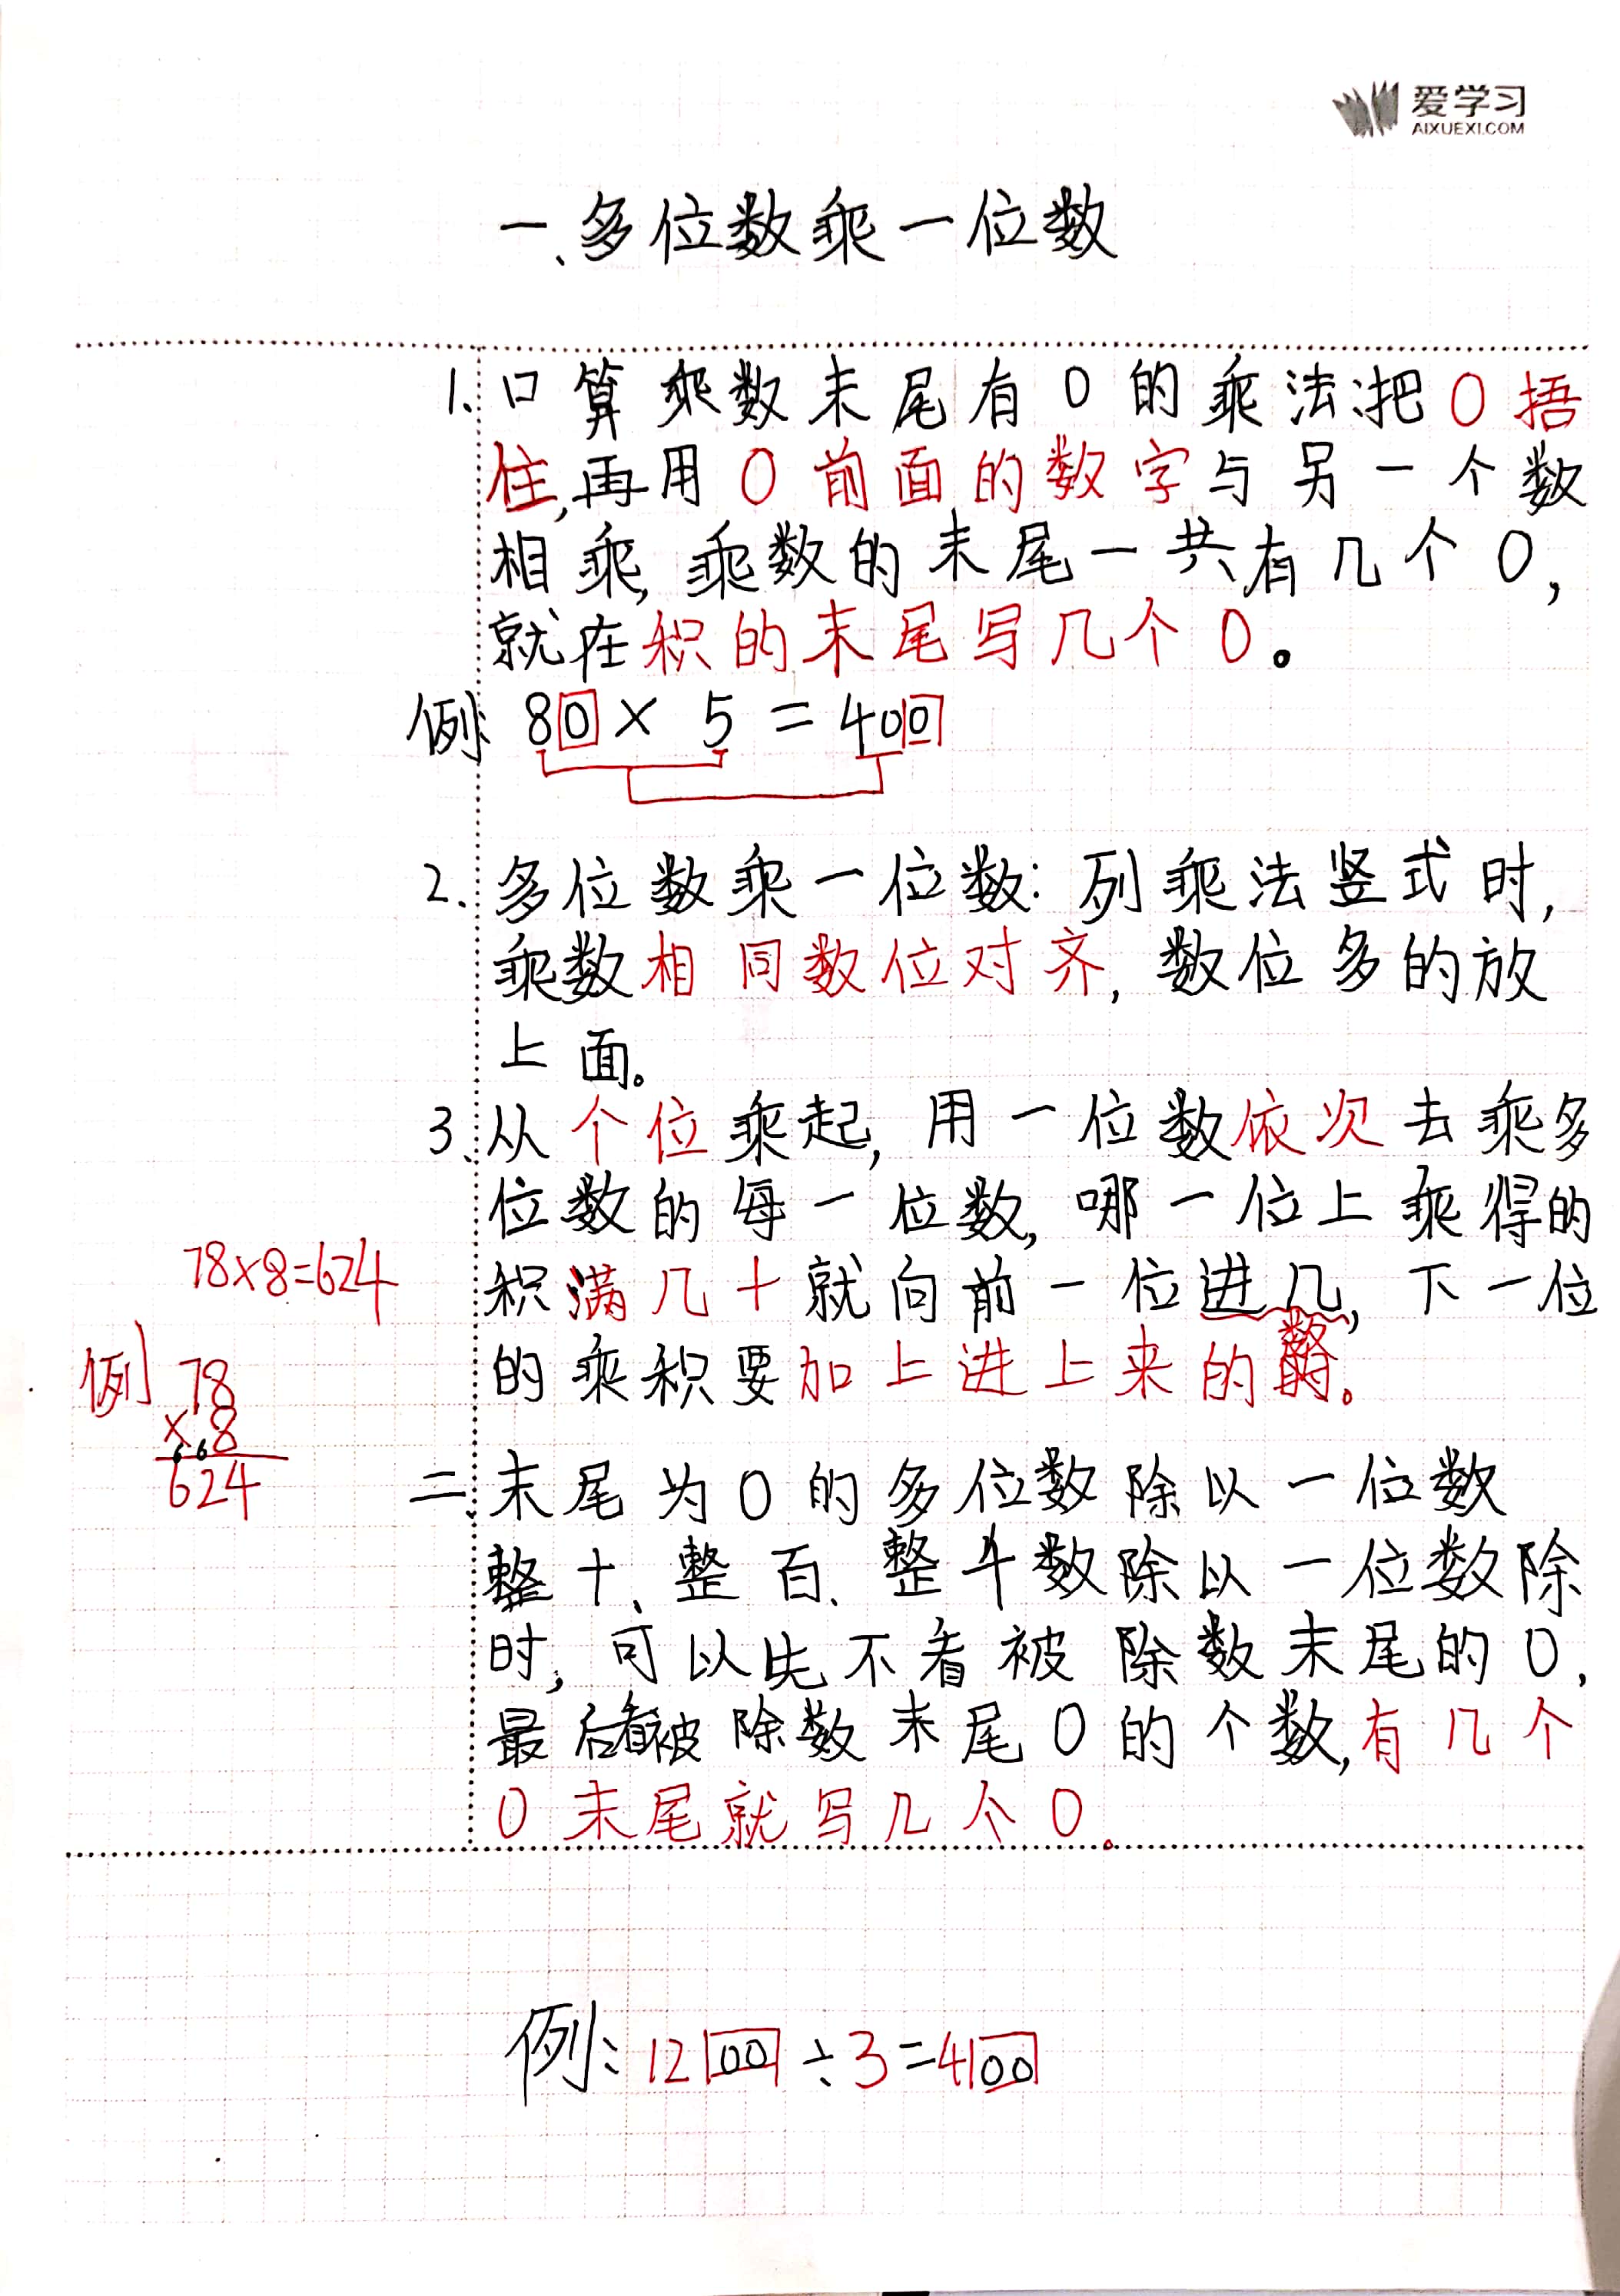 爱学习
AIXUEXI.COM
一、多位数乘一位数
1.口算乘数末尾有0的乘法:把0捂
住,再用0前面的数字与另一个数
相乘,乘数的末尾一共有几个0,
就在积的末尾写几个0。
例: 80 × 5 = 400
2.多位数乘一位数:列乘法竖式时,
乘数相同数位对齐,数位多的放
上面。
3.从个位乘起,用一位数依次去乘多
位数的每一位数,哪一位上乘得的
积满几十就向前一位进几,下一位
的乘积要加上进上来的数。
78×8=624
例 78
×8
66
624
二、末尾为0的多位数除以一位数
整十、整百、整千数除以一位数除
时,可以先不看被除数末尾的0,
最后看被除数末尾0的个数,有几个
0末尾就写几个0。
例: 1200÷3=400